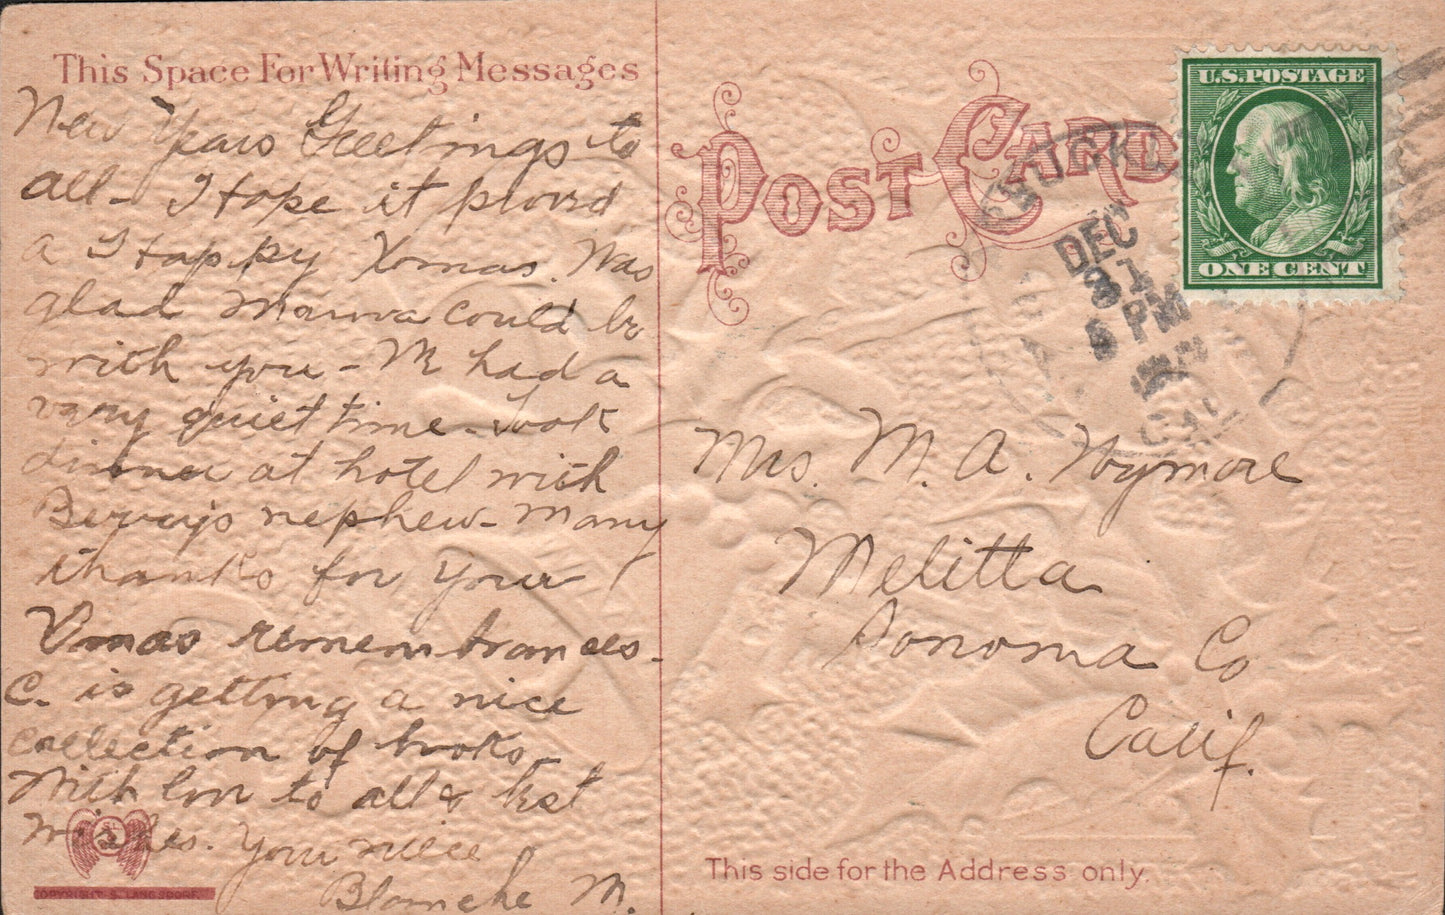 This Space For Writing Messages
New Years Greetings to
all - I Hope it proved
a Happy Xmas. Was
glad Mamma could be
with you - M had a
very quiet time - Took
dinner at hotel with
nephew - Many
thanks for your
Xmas remembrances -
C. is getting a nice
collection of books -
With love to all & best
wishes. Your niece
Blanche M.
COPYRIGHT S. LANGSDORF
POST CARD
U.S. POSTAGE
ONE CENT
DEC
31
PM
CAL
Mrs. M. A. Wymore
Melitta
Sonoma Co
Calif.
This side for the Address only.